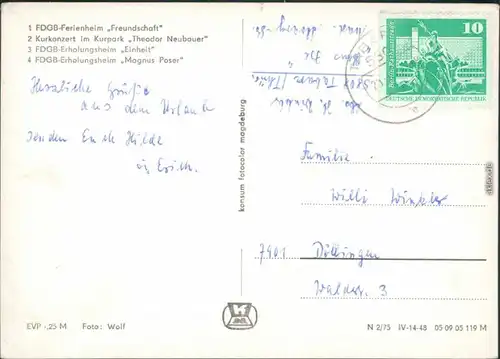 1 FDGB-Ferienheim „Freundschaft"
2 Kurkonzert im Kurpark "Theodor Neubauer"
3 FDGB-Erholungsheim „Einheit"
4 FDGB-Erholungsheim „Magnus Poser"
Herzliche Grüße
aus dem Urlaub
senden Euch Hilde
u. Erich.
EVP -,25 M Foto: Wolf
konsum fotocolor magdeburg
10
DEUTSCHE DEMOKRATISCHE REPUBLIK
Familie
Willi Winkler
7901 Döllingen
Waldstr. 3
N 2/75 IV-14-48 05 09 05 119 M